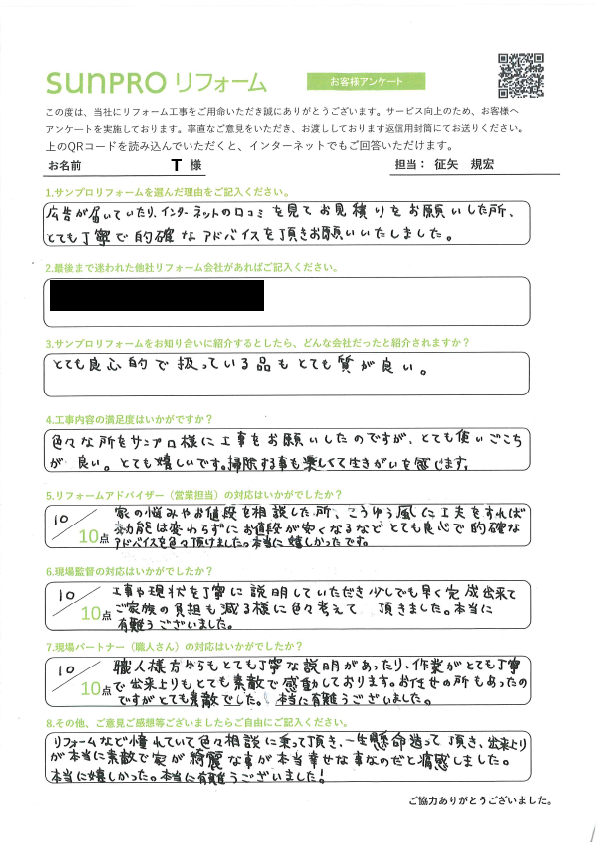 SUNPRO リフォーム
お客様アンケート
この度は、当社にリフォーム工事をご用命いただき誠にありがとうございます。サービス向上のため、お客様へ
アンケートを実施しております。率直なご意見をいただき、お渡ししております返信用封筒にてお送りください。
上のQRコードを読み込んでいただくと、インターネットでもご回答いただけます。
お名前 T 様 担当： 征矢 規宏
1.サンプロリフォームを選んだ理由をご記入ください。
広告が届いていたり、インターネットの口コミを見てお見積りをお願いした所、
とても丁寧で的確なアドバイスを頂きお願いいたしました。
2.最後まで迷われた他社リフォーム会社があればご記入ください。
3.サンプロリフォームをお知り合いに紹介するとしたら、どんな会社だったと紹介されますか？
とても良心的で扱っている品もとても質が良い。
4.工事内容の満足度はいかがですか？
色々な所をサンプロ様に工事をお願いしたのですが、とても使いごこち
が良い。とても嬉しいです。掃除する事も楽しくて生きがいを感じます。
5.リフォームアドバイザー（営業担当）の対応はいかがでしたか？
10／10点
家の悩みやお値段を相談した所、こうゆう風に工夫をすれば
効能は変わらずにお値段が安くなるなどとても良心で的確な
アドバイスを色々頂けました。本当に嬉しかったです。
6.現場監督の対応はいかがでしたか？
10／10点
工事や現状を丁寧に説明していただき少しでも早く完成出来て
ご家族の負担も減る様に色々考えて頂きました。本当に
有難うございました。
7.現場パートナー（職人さん）の対応はいかがでしたか？
10／10点
職人様方からもとても丁寧な説明があったり、作業がとても丁寧
で出来上りもとても素敵で感動しております。お任せの所もあったの
ですがとても素敵でした。本当に有難うございました。
8.その他、ご意見ご感想等ございましたらご自由にご記入ください。
リフォームなど憧れていて色々相談に乗って頂き、一生懸命造って頂き、出来上り
が本当に素敵で家が綺麗な事が本当幸せな事なのだと痛感しました。
本当に嬉しかった。本当に有難うございました！
ご協力ありがとうございました。